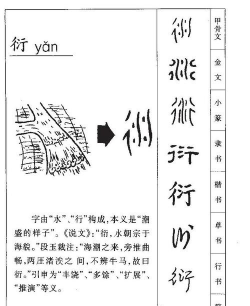 衍 yǎn
字由“水”、“行”构成,本义是“潮
盛的样子”。《说文》:“衍,水朝宗于
海貌。”段玉裁注:“海潮之来,旁推曲
畅,两厓渚涘之间,不辨牛马,故曰
衍。”引申为“丰饶”、“多馀”、“扩展”、
“推演”等义。
甲骨文
金文
小篆
隶书
楷书
草书
行书